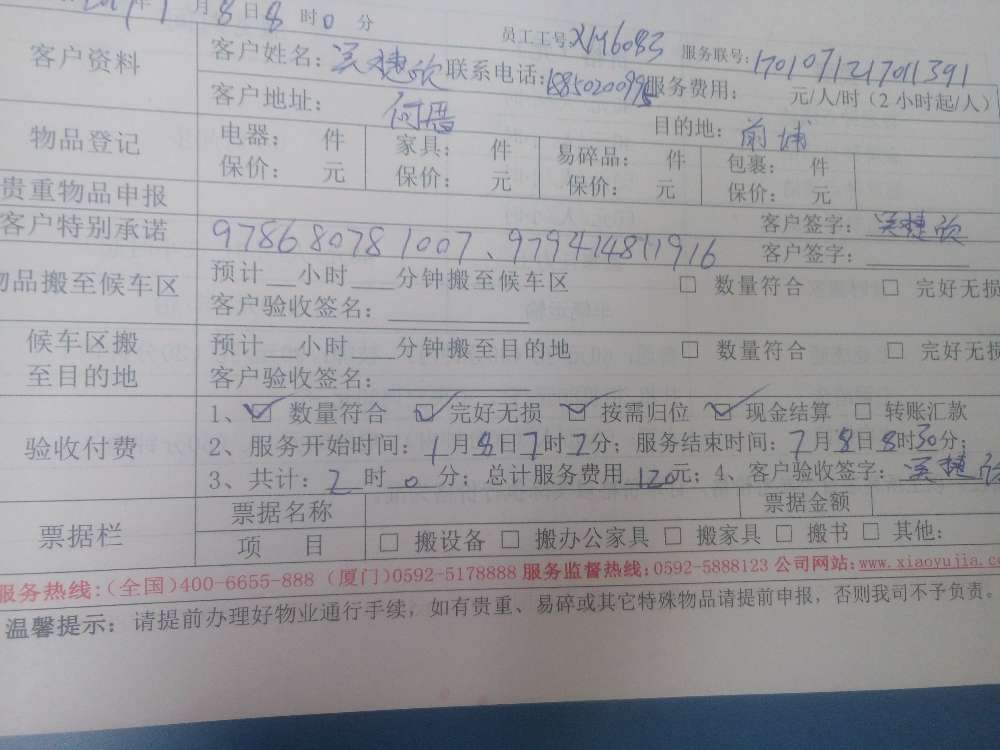 月8日8时0分
员工工号:XM6083 服务联号:1701071217011391
客户资料 客户姓名:吴捷欣 联系电话: 服务费用: 元/人/时(2小时起/人)
客户地址: 何厝 目的地: 前埔
物品登记 电器: 件 家具: 件 易碎品: 件 包裹: 件
保价: 元 保价: 元 保价: 元 保价: 元
贵重物品申报 客户签字:吴捷欣
客户特别承诺 978680781007、979414811916 客户签字:
物品搬至候车区 预计 小时 分钟搬至候车区 □ 数量符合 □ 完好无损
客户验收签名:
候车区搬至目的地 预计 小时 分钟搬至目的地 □ 数量符合 □ 完好无损
客户验收签名:
验收付费 1、☑ 数量符合 ☑ 完好无损 ☑ 按需归位 ☑ 现金结算 □ 转账汇款
2、服务开始时间:1月8日7时2分;服务结束时间:7月8日8时30分;
3、共计:2时0分;总计服务费用120元;4、客户验收签字:吴捷欣
票据栏 票据名称 票据金额
项 目 □ 搬设备 □ 搬办公家具 □ 搬家具 □ 搬书 □ 其他:
服务热线:(全国)400-6655-888 (厦门)0592-5178888 服务监督热线:0592-5888123 公司网站:www.xiaoyujia.co
温馨提示:请提前办理好物业通行手续,如有贵重、易碎或其它特殊物品请提前申报,否则我司不予负责。